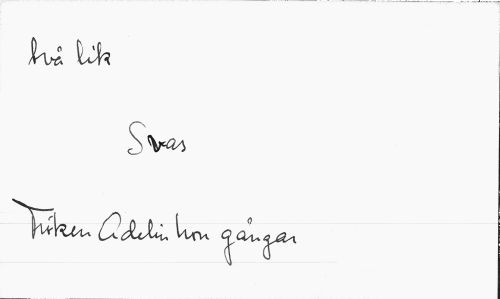 två lik
Svas
Fröken Adelin hon gångar